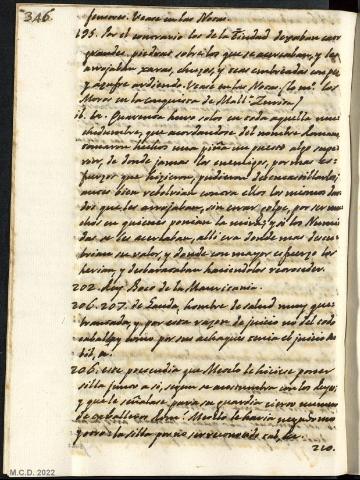 346.
señores. Vease en las Notas.
195. Por el contrario los de la Ziudad dejaban caer
grandes piedras sobre los que se acercaban, y les
arrojaban xaras, chuzos, y teas embreadas con pez
y azufre ardiendo. Vease en las Notas (lo mº los
Moros en la conquista de Mall. Zurita)
ib. Quarenta huvo solos en toda aquella mu
chedumbre, que acordandose del nombre Romano,
tomaron hechos una piña un puesto algo supe
rior, de donde jamas los enemigos, por mas es
fuerzos que hicieron, pudieron
antes bien rebolvian contra ellos los mismos dar
dos que les arrojaban, sin errar golpe, por ser mu
chos en quienes ponian la mira; y si los Numi
das se les acercaban, alli era donde mas descu
brian su valor, y donde con mayor esfuerzo los
herian, y desbarataban haciendolos retroceder.
202. Rey Boco de la Mauritania.
206. 207. de Gauda, hombre de salud muy que
brantada, y por esta razon de juicio no del todo
cabal, y como por sus achaques tenia el juicio de
bil, &.
206. este pretendia que Metelo le hiciese poner
silla junto a si, segun se acostumbra con los Reyes,
y que le señalase para su guardia cierto numero
de caballeros Metelo le havia negado uno
y otro: la silla por no ser reconocido
210.
M.C.D. 2022